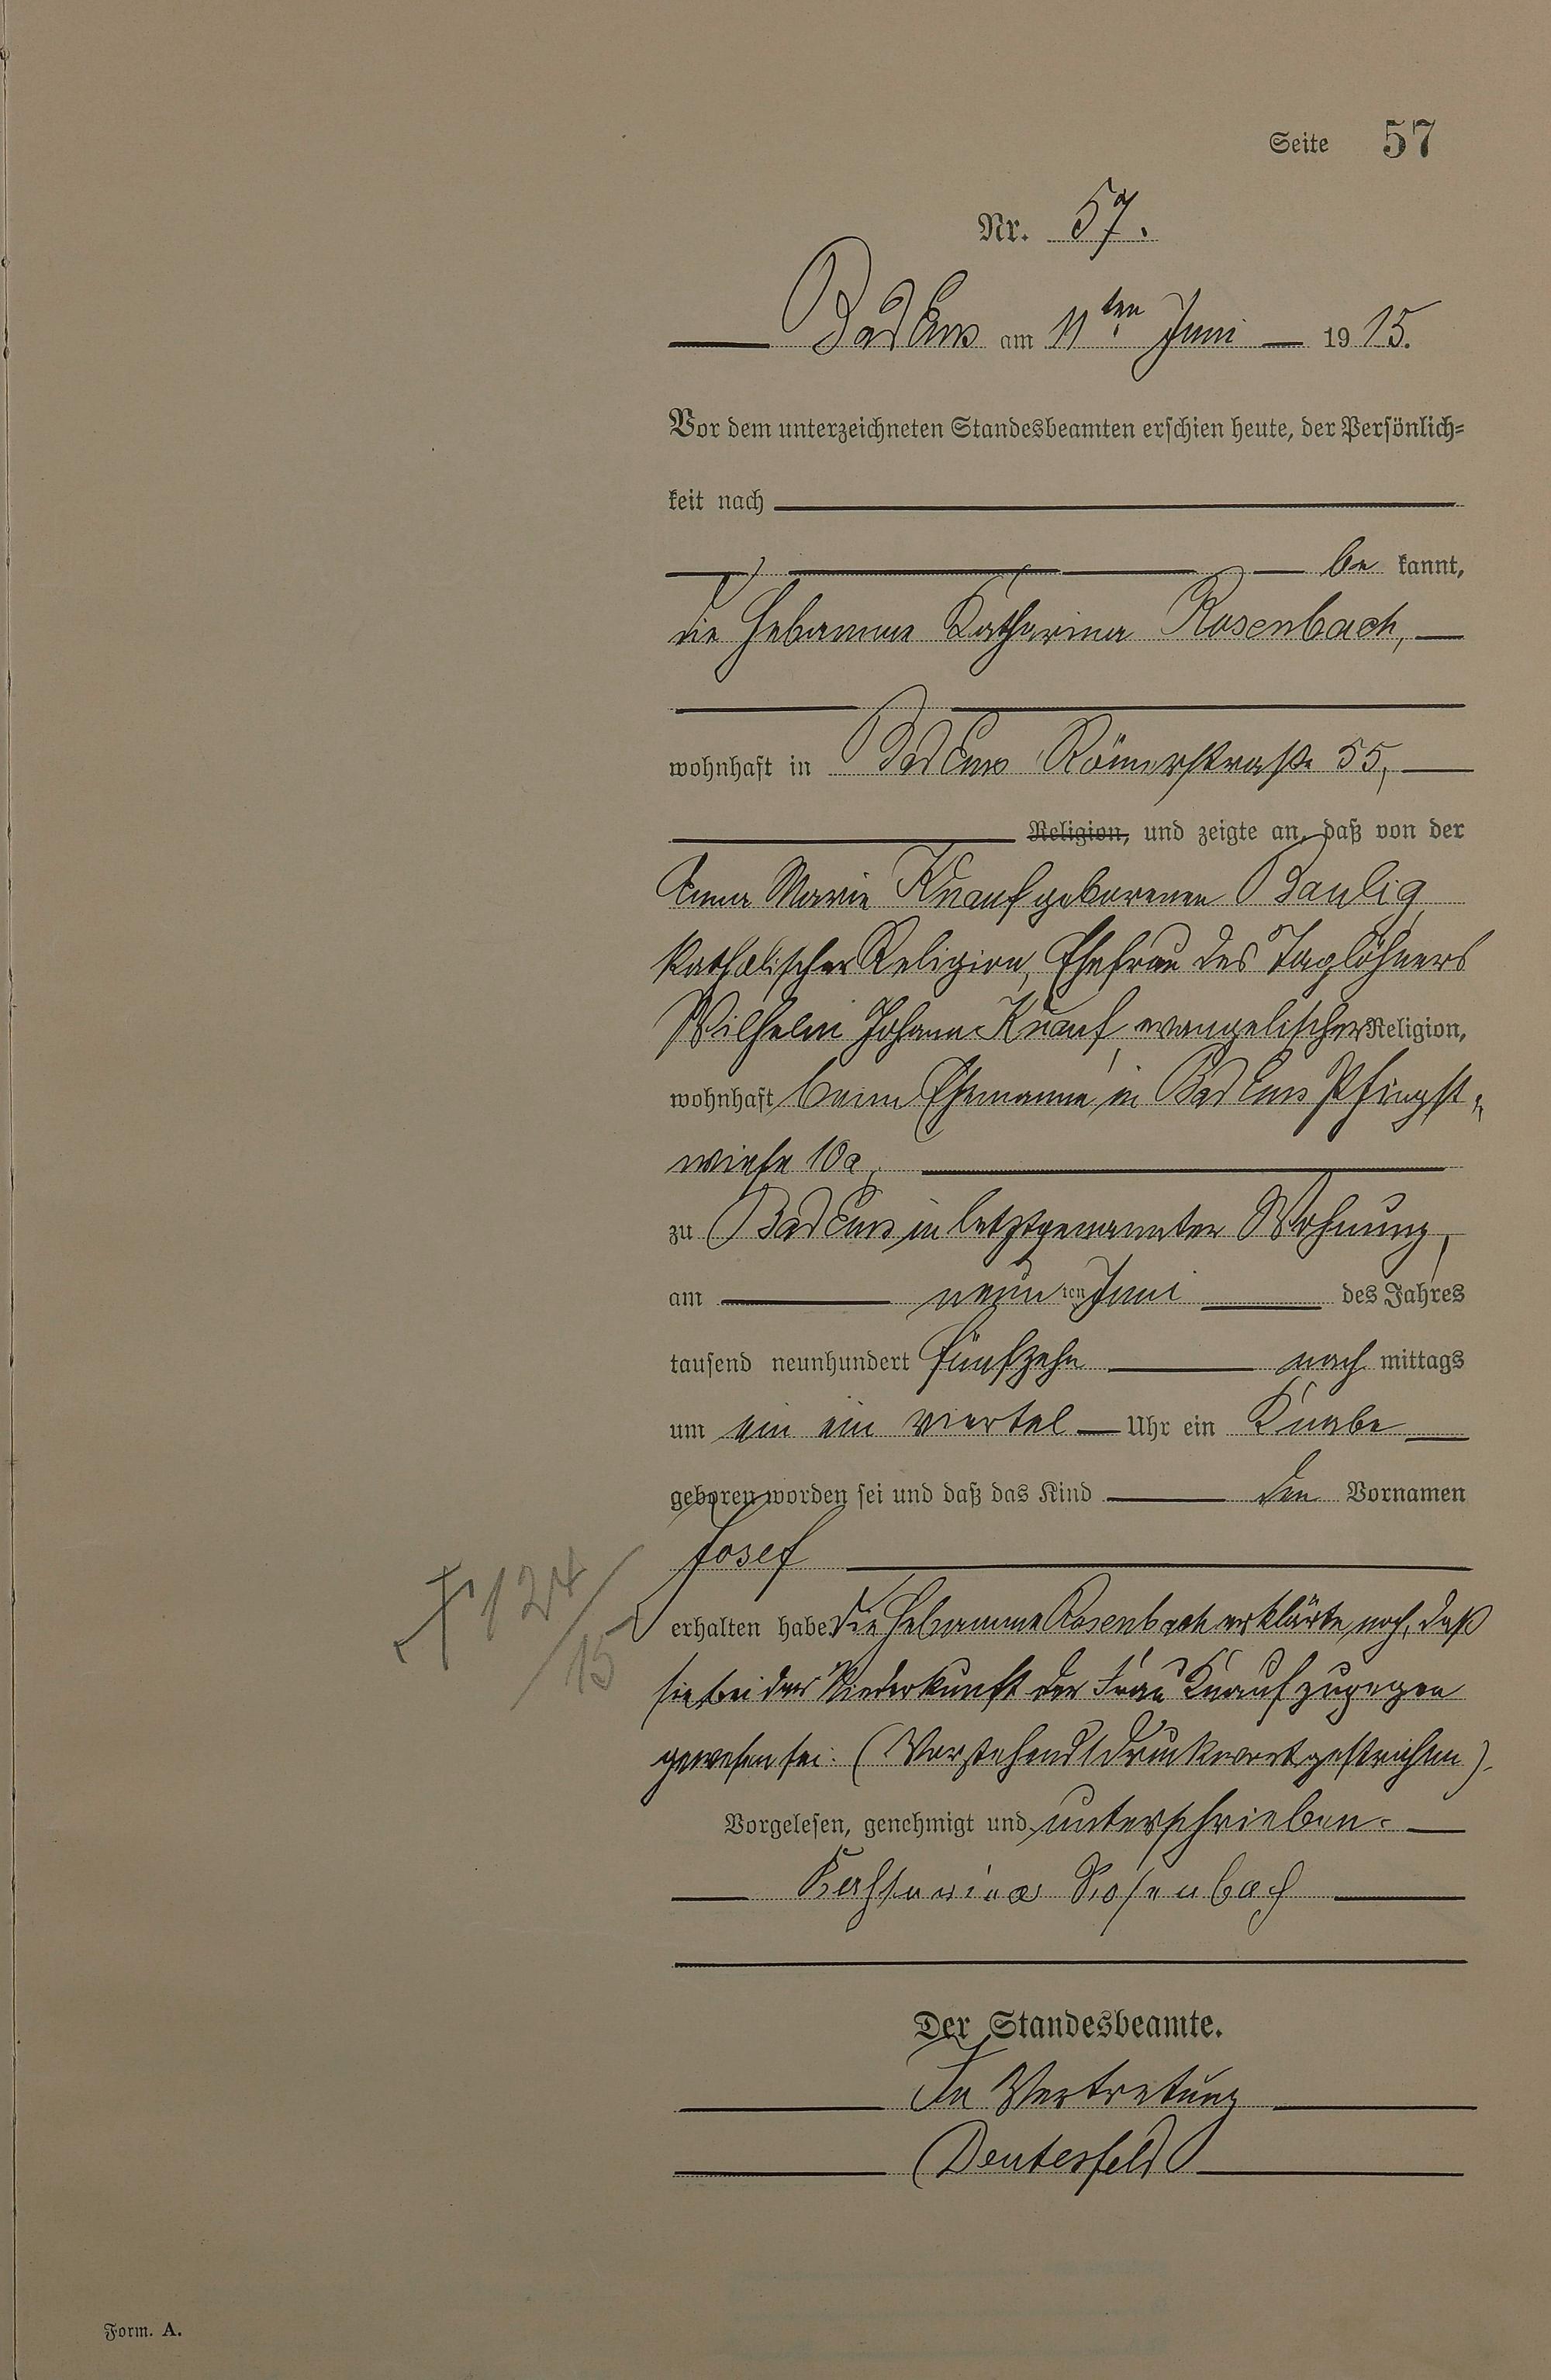 Seite 57
Nr. 57.
Bad Ems am 11ten Juni 1915.
Vor dem unterzeichneten Standesbeamten erschien heute, der Persönlich-
keit nach
be kannt,
die Hebamme Katharina Rosenbach,
wohnhaft in Bad Ems Römerstraße 55,
Religion, und zeigte an, daß von der
Anna Marie Knauf geborenen Baulig
katholischer Religion, Ehefrau des Taglöhners
Wilhelm Johann Knauf, evangelischer Religion,
wohnhaft beim Ehemanne in Bad Ems Pfingst-
wiese 10a,
zu Bad Ems in letztgenannter Wohnung,
am neun ten Juni des Jahres
tausend neunhundert fünfzehn nach mittags
um ein ein viertel Uhr ein Knabe
geboren worden sei und daß das Kind den Vornamen
Josef
† 124/15
erhalten habe. Die Hebamme Rosenbach erklärte noch, daß
sie bei der Niederkunft der Frau Knauf zugegen
gewesen sei. (Vorstehend 1 Druckwort gestrichen).
Vorgelesen, genehmigt und unterschrieben.
Katharina Rosenbach
Der Standesbeamte.
In Vertretung
Deutesfeld
Form. A.